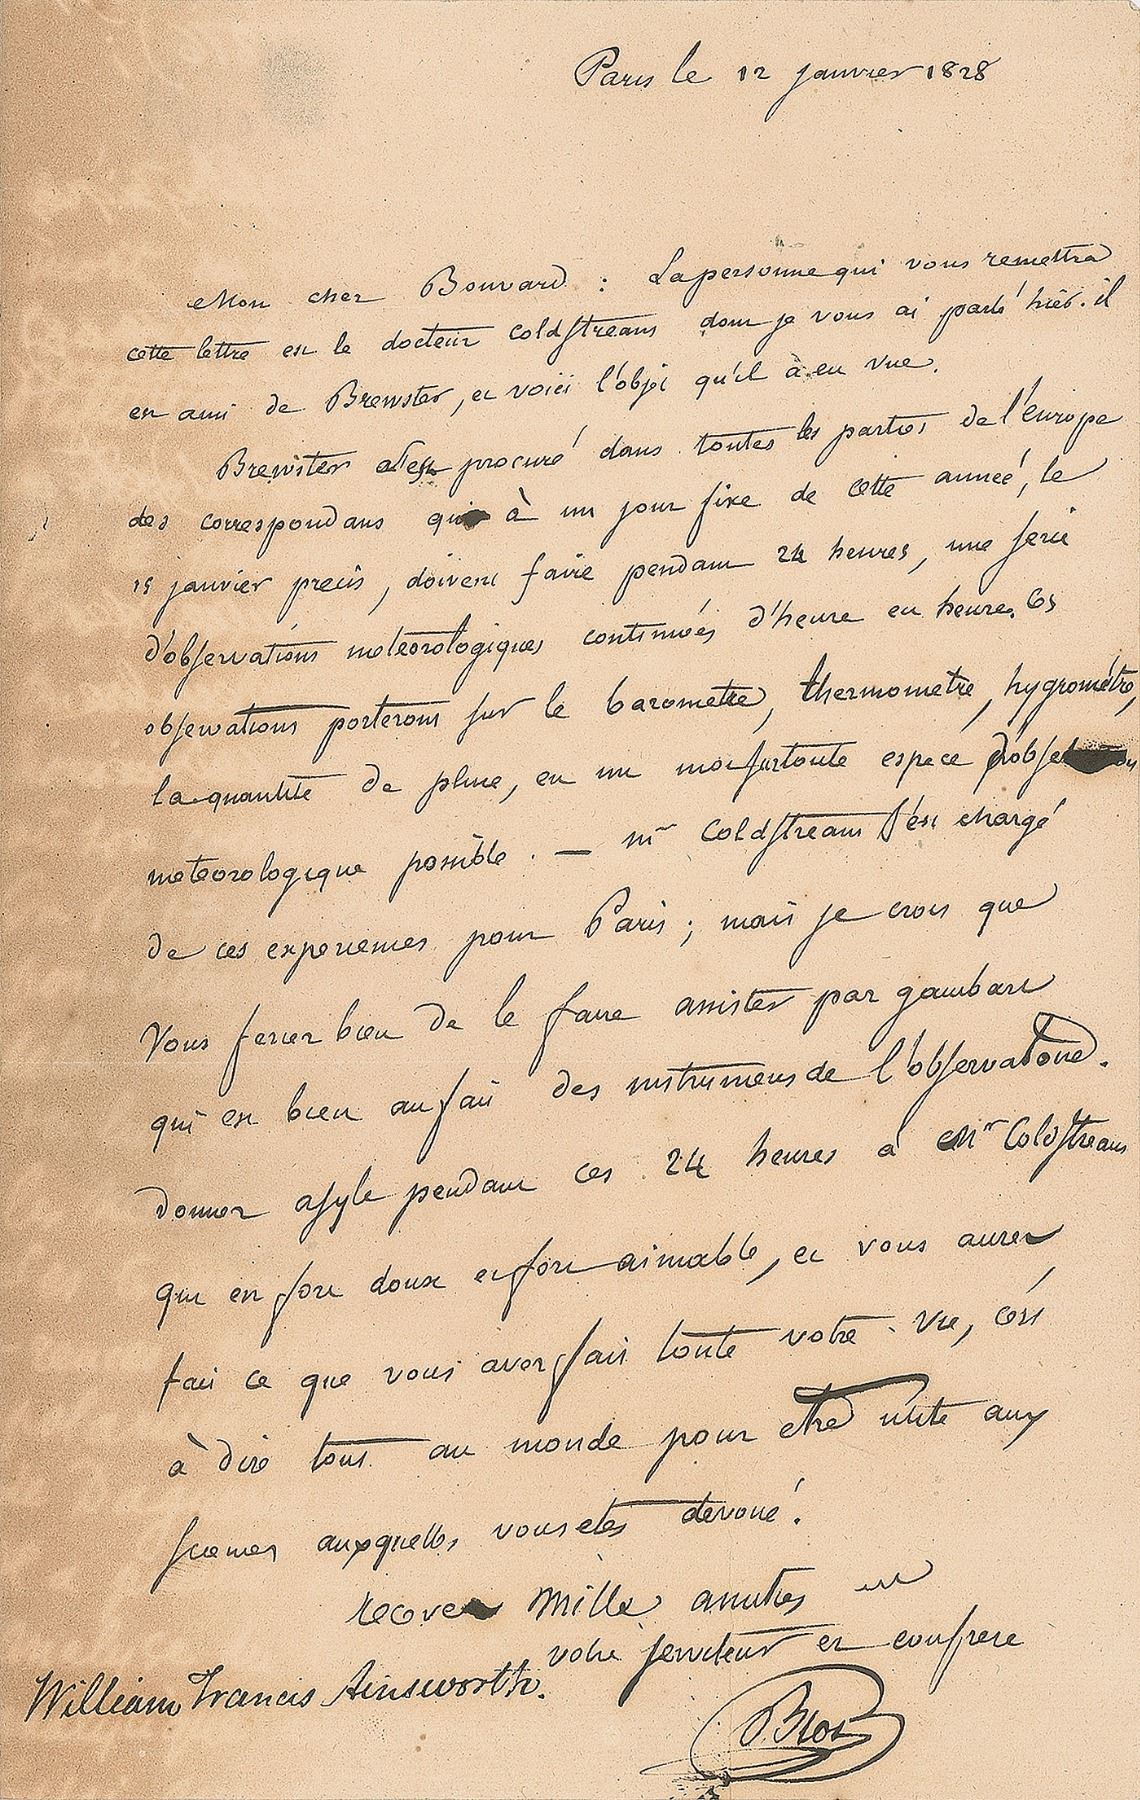 Paris le 12 janvier 1828
Mon cher Bouvard : La personne qui vous remettra
cette lettre est le docteur Coldstream dont je vous ai parlé hier. il
est ami de Brewster, et voici l'objet qu'il a en vue.
Brewster s'est procuré dans toutes les parties de l'europe
des correspondans qui à un jour fixe de cette année, le
15 janvier precis, doivent faire pendant 24 heures, une serie
d'observations meteorologiques continuées d'heure en heure. Ces
observations porteront sur le barometre, thermometre, hygrométre,
la quantité de pluie, en un mot sur toute espece d'observation
meteorologique possible. — mr Coldstream s'est chargé
de ces experiences pour Paris ; mais je crois que
Vous ferez bien de le faire assister par gambart
qui est bien au fait des instrumens de l'observatoire.
donner asyle pendant ces 24 heures à Mr Coldstream
qui est fort doux et fort aimable, et vous aurez
fait ce que vous avez fait toute votre vie, c'est
à dire tout au monde pour etre utile aux
sciences auxquelles vous etes devoué.
recevez Mille amities
votre serviteur et confrere
William Francis Ainsworth.
Biot